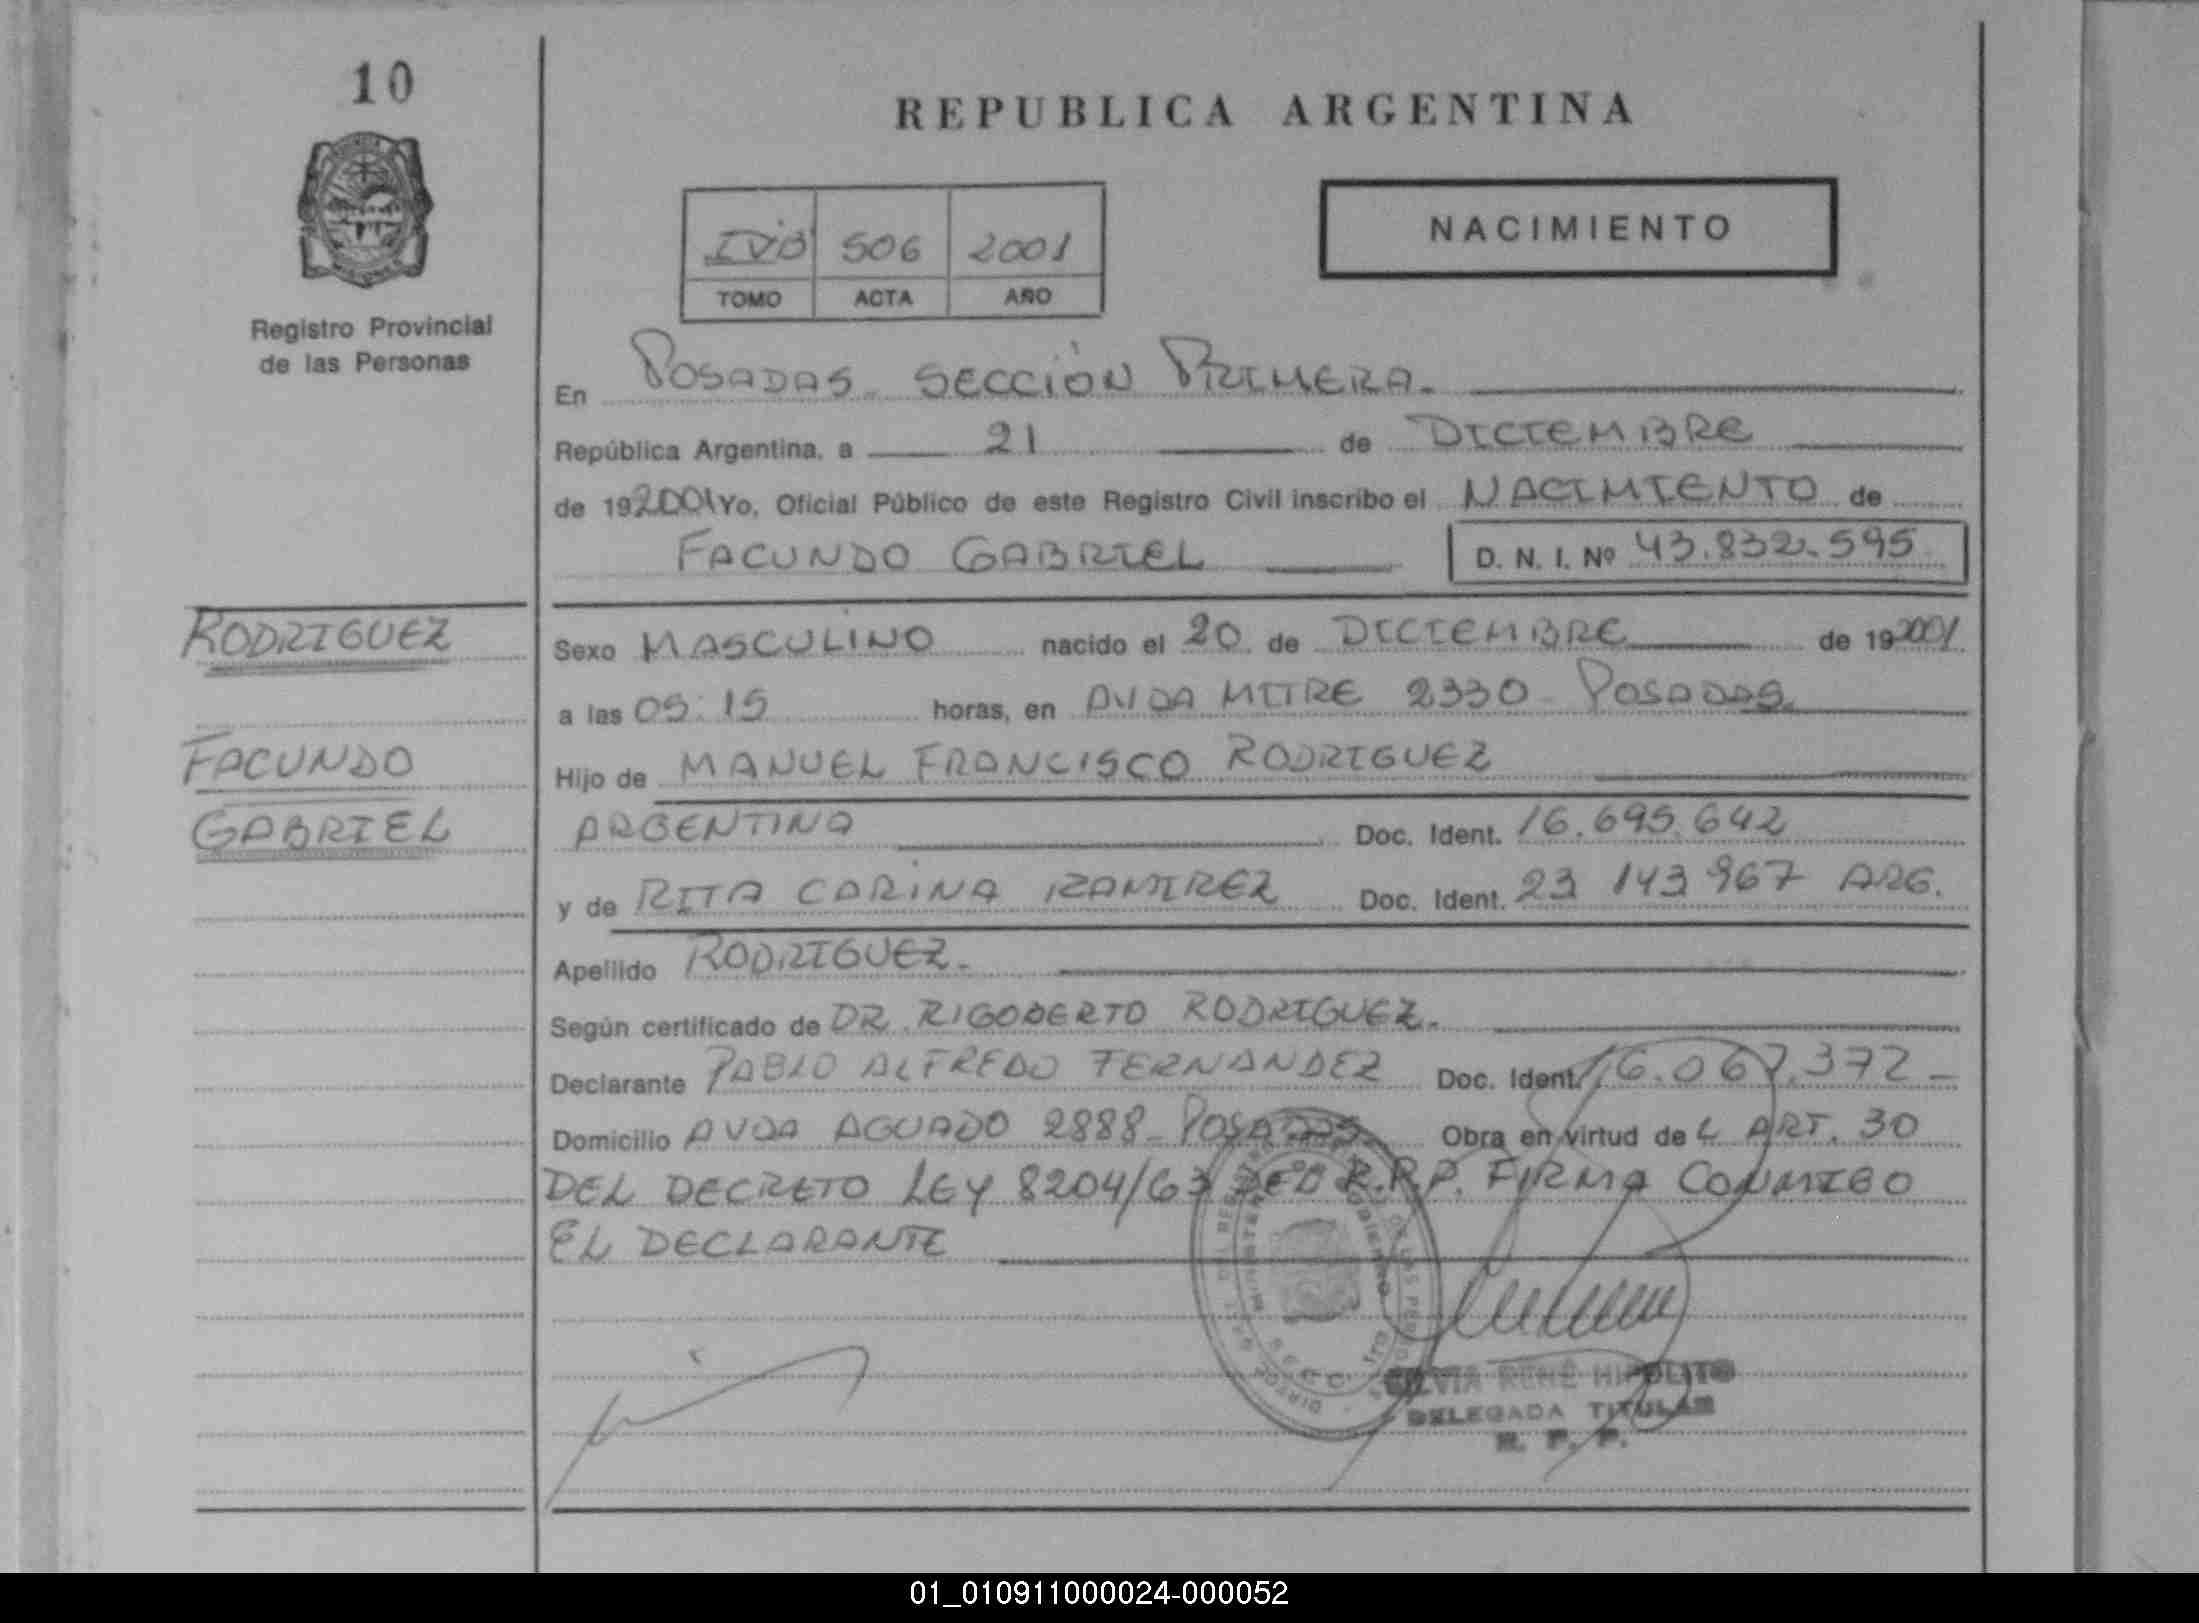 10
REPUBLICA ARGENTINA
NACIMIENTO
506 2001
TOMO ACTA AÑO
Registro Provincial
de las Personas
En POSADAS - SECCIÓN PRIMERA.
República Argentina, a 21 de DICIEMBRE
de 192001 Yo, Oficial Público de este Registro Civil inscribo el NACIMIENTO de
FACUNDO GABRIEL D. N. I. Nº 43.832.595
RODRIGUEZ
FACUNDO
GABRIEL
Sexo MASCULINO nacido el 20 de DICIEMBRE de 192001.
a las 05:15 horas, en AVDA MITRE 2330 - POSADAS.
Hijo de MANUEL FRANCISCO RODRIGUEZ
ARGENTINA Doc. Ident. 16.695.642
y de RITA CARINA RAMIREZ Doc. Ident. 23 143 967 ARG.
Apellido RODRIGUEZ.
Según certificado de DR. RIGOBERTO RODRIGUEZ.
Declarante PABLO ALFREDO FERNANDEZ Doc. Ident. 16.067.372 -
Domicilio AVDA AGUADO 2888 - POSADAS. Obra en virtud de L ART. 30
DEL DECRETO LEY 8204/63 DEL R.P.P. FIRMA CONMIGO
EL DECLARANTE
SILVIA RENÉ HIPOLITO
DELEGADA TITULAR
R. P. P.
01_010911000024-000052